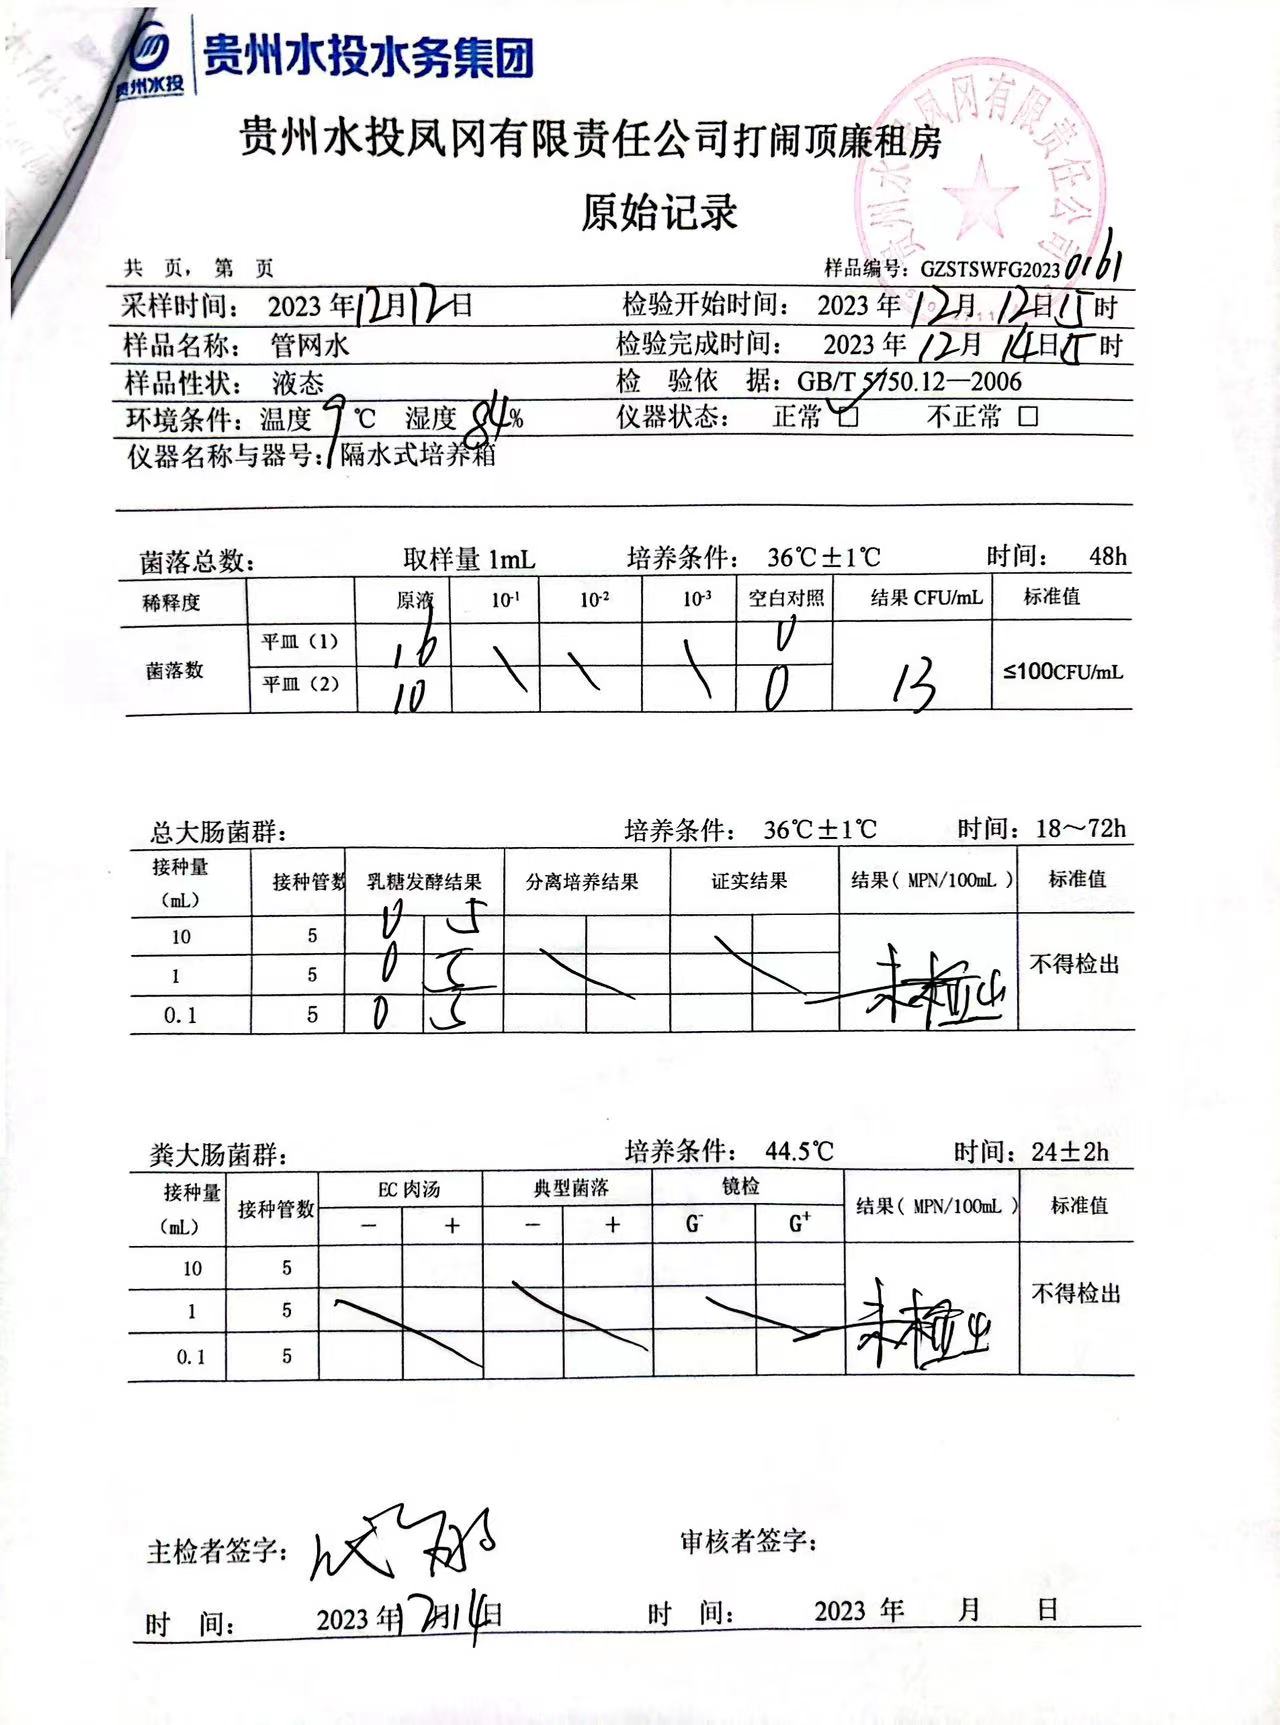 贵州水投 贵州水投水务集团
贵州水投凤冈有限责任公司打闹顶廉租房
原始记录
共 页，第 页 样品编号：GZSTSWFG20230161
采样时间： 2023年12月12日 检验开始时间： 2023年12月12日15时
样品名称： 管网水 检验完成时间： 2023年12月14日15时
样品性状： 液态 检 验依 据：GB/T 5750.12—2006
环境条件：温度 9℃ 湿度 84% 仪器状态： 正常 ☑ 不正常 □
仪器名称与器号：隔水式培养箱
菌落总数： 取样量 1mL 培养条件： 36℃±1℃ 时间： 48h
稀释度 原液 10⁻¹ 10⁻² 10⁻³ 空白对照 结果 CFU/mL 标准值
菌落数 平皿（1） 16 \ \ \ 0 13 ≤100CFU/mL
平皿（2） 10 0
总大肠菌群： 培养条件： 36℃±1℃ 时间：18～72h
接种量（mL） 接种管数 乳糖发酵结果 分离培养结果 证实结果 结果（MPN/100mL） 标准值
10 5 0 5 未检出 不得检出
1 5 0 5
0.1 5 0 5
粪大肠菌群： 培养条件： 44.5℃ 时间：24±2h
接种量（mL） 接种管数 EC肉汤 典型菌落 镜检 结果（MPN/100mL） 标准值
－ ＋ － ＋ G⁻ G⁺
10 5 未检出 不得检出
1 5
0.1 5
主检者签字： 审核者签字：
时 间： 2023年12月14日 时 间： 2023 年 月 日